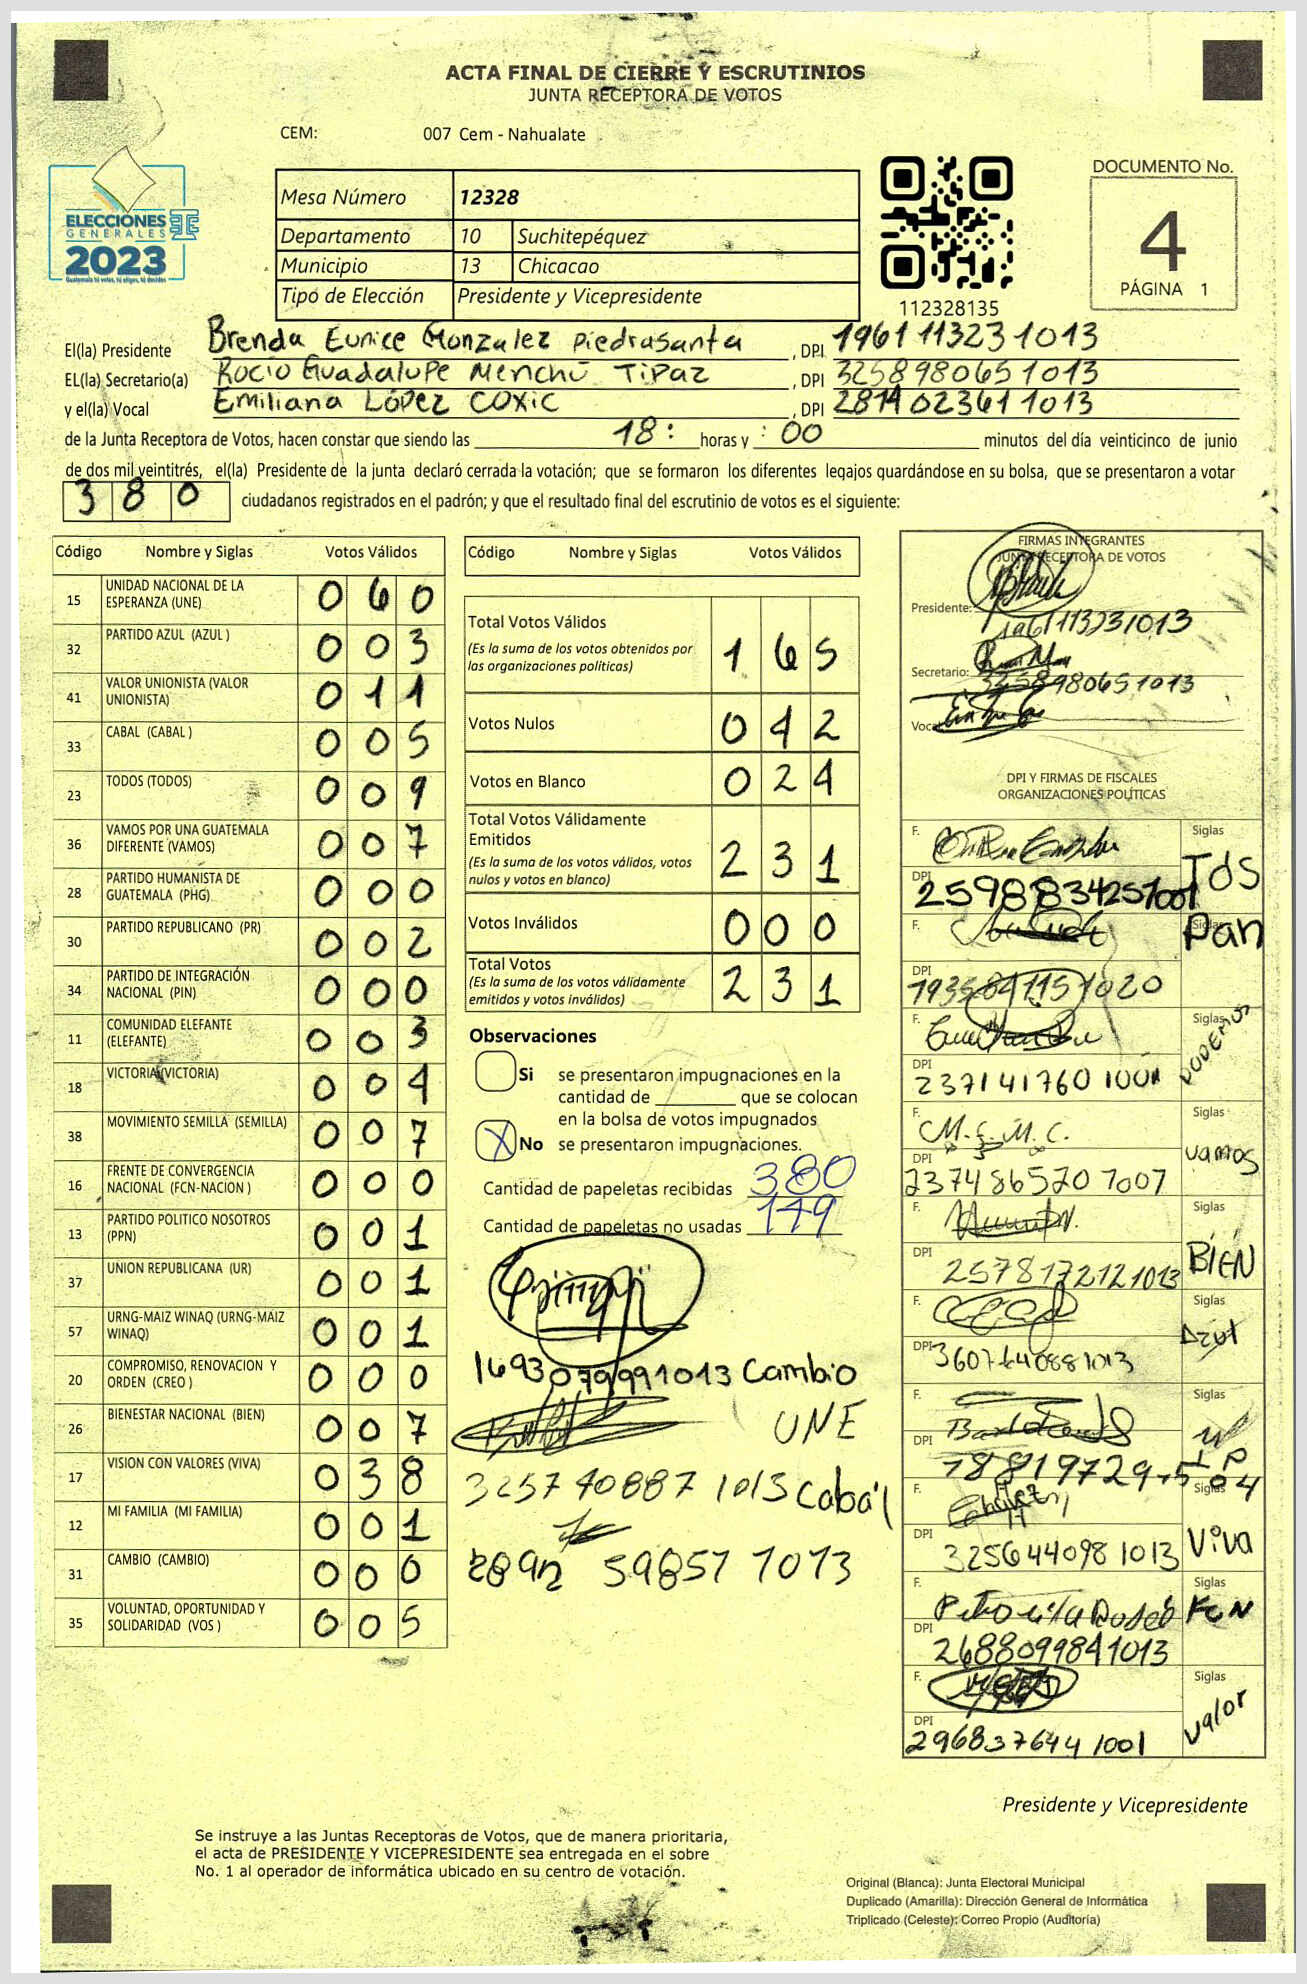 ACTA FINAL DE CIERRE Y ESCRUTINIOS
JUNTA RECEPTORA DE VOTOS
CEM: 007 Cem - Nahualate
ELECCIONES
GENERALES
2023
Guatemala tú votas, tú eliges, tú decides
Mesa Número 12328
Departamento 10 Suchitepéquez
Municipio 13 Chicacao
Tipo de Elección Presidente y Vicepresidente
112328135
DOCUMENTO No.
4
PÁGINA 1
El(la) Presidente Brenda Eunice Gonzalez Piedrasanta , DPI 1961113231013
EL(la) Secretario(a) Rocio Guadalupe Menchú Tipaz , DPI 3258980651013
y el(la) Vocal Emiliana López Coxic , DPI 2814023611013
de la Junta Receptora de Votos, hacen constar que siendo las 18: horas y : 00 minutos del día veinticinco de junio
de dos mil veintitrés, el(la) Presidente de la junta declaró cerrada la votación; que se formaron los diferentes legajos quardándose en su bolsa, que se presentaron a votar
380 ciudadanos registrados en el padrón; y que el resultado final del escrutinio de votos es el siguiente:
Código Nombre y Siglas Votos Válidos
15 UNIDAD NACIONAL DE LA ESPERANZA (UNE) 060
32 PARTIDO AZUL (AZUL ) 003
41 VALOR UNIONISTA (VALOR UNIONISTA) 011
33 CABAL (CABAL ) 005
23 TODOS (TODOS) 009
36 VAMOS POR UNA GUATEMALA DIFERENTE (VAMOS) 007
28 PARTIDO HUMANISTA DE GUATEMALA (PHG) 000
30 PARTIDO REPUBLICANO (PR) 002
34 PARTIDO DE INTEGRACIÓN NACIONAL (PIN) 000
11 COMUNIDAD ELEFANTE (ELEFANTE) 003
18 VICTORIA (VICTORIA) 004
38 MOVIMIENTO SEMILLA (SEMILLA) 007
16 FRENTE DE CONVERGENCIA NACIONAL (FCN-NACION ) 000
13 PARTIDO POLITICO NOSOTROS (PPN) 001
37 UNION REPUBLICANA (UR) 001
57 URNG-MAIZ WINAQ (URNG-MAIZ WINAQ) 001
20 COMPROMISO, RENOVACION Y ORDEN (CREO ) 000
26 BIENESTAR NACIONAL (BIEN) 007
17 VISION CON VALORES (VIVA) 038
12 MI FAMILIA (MI FAMILIA) 001
31 CAMBIO (CAMBIO) 000
35 VOLUNTAD, OPORTUNIDAD Y SOLIDARIDAD (VOS ) 005
Código Nombre y Siglas Votos Válidos
Total Votos Válidos 165
(Es la suma de los votos obtenidos por
las organizaciones políticas)
Votos Nulos 042
Votos en Blanco 024
Total Votos Válidamente
Emitidos 231
(Es la suma de los votos válidos, votos
nulos y votos en blanco)
Votos Inválidos 000
Total Votos 231
(Es la suma de los votos válidamente
emitidos y votos inválidos)
Observaciones
Si se presentaron impugnaciones en la
cantidad de que se colocan
en la bolsa de votos impugnados
X No se presentaron impugnaciones.
Cantidad de papeletas recibidas 380
Cantidad de papeletas no usadas 149
1693079991013 Cambio
UNE
3257408871013 Cabal
59857 1013
FIRMAS INTEGRANTES
JUNTA RECEPTORA DE VOTOS
Presidente:
1961113231013
Secretario:
3258980651013
Vocal
DPI Y FIRMAS DE FISCALES
ORGANIZACIONES POLÍTICAS
F. Siglas
DPI 2598834251001 Tds
F. Siglas Pan
DPI
F. Siglas PODEMOS
DPI
F. M.F.M.C. Siglas
DPI 2374865207007 vamos
F. Siglas
DPI 2578172121013 BIEN
F. Siglas
DPI 3607640881013 Azul
F. Siglas
DPI
F. Siglas
DPI 3256440981013 Viva
F. Siglas FCN
DPI 2688099841013
F. Siglas
DPI 2968376441001 Valor
Presidente y Vicepresidente
Se instruye a las Juntas Receptoras de Votos, que de manera prioritaria,
el acta de PRESIDENTE Y VICEPRESIDENTE sea entregada en el sobre
No. 1 al operador de informática ubicado en su centro de votación.
Original (Blanca): Junta Electoral Municipal
Duplicado (Amarilla): Dirección General de Informática
Triplicado (Celeste): Correo Propio (Auditoría)